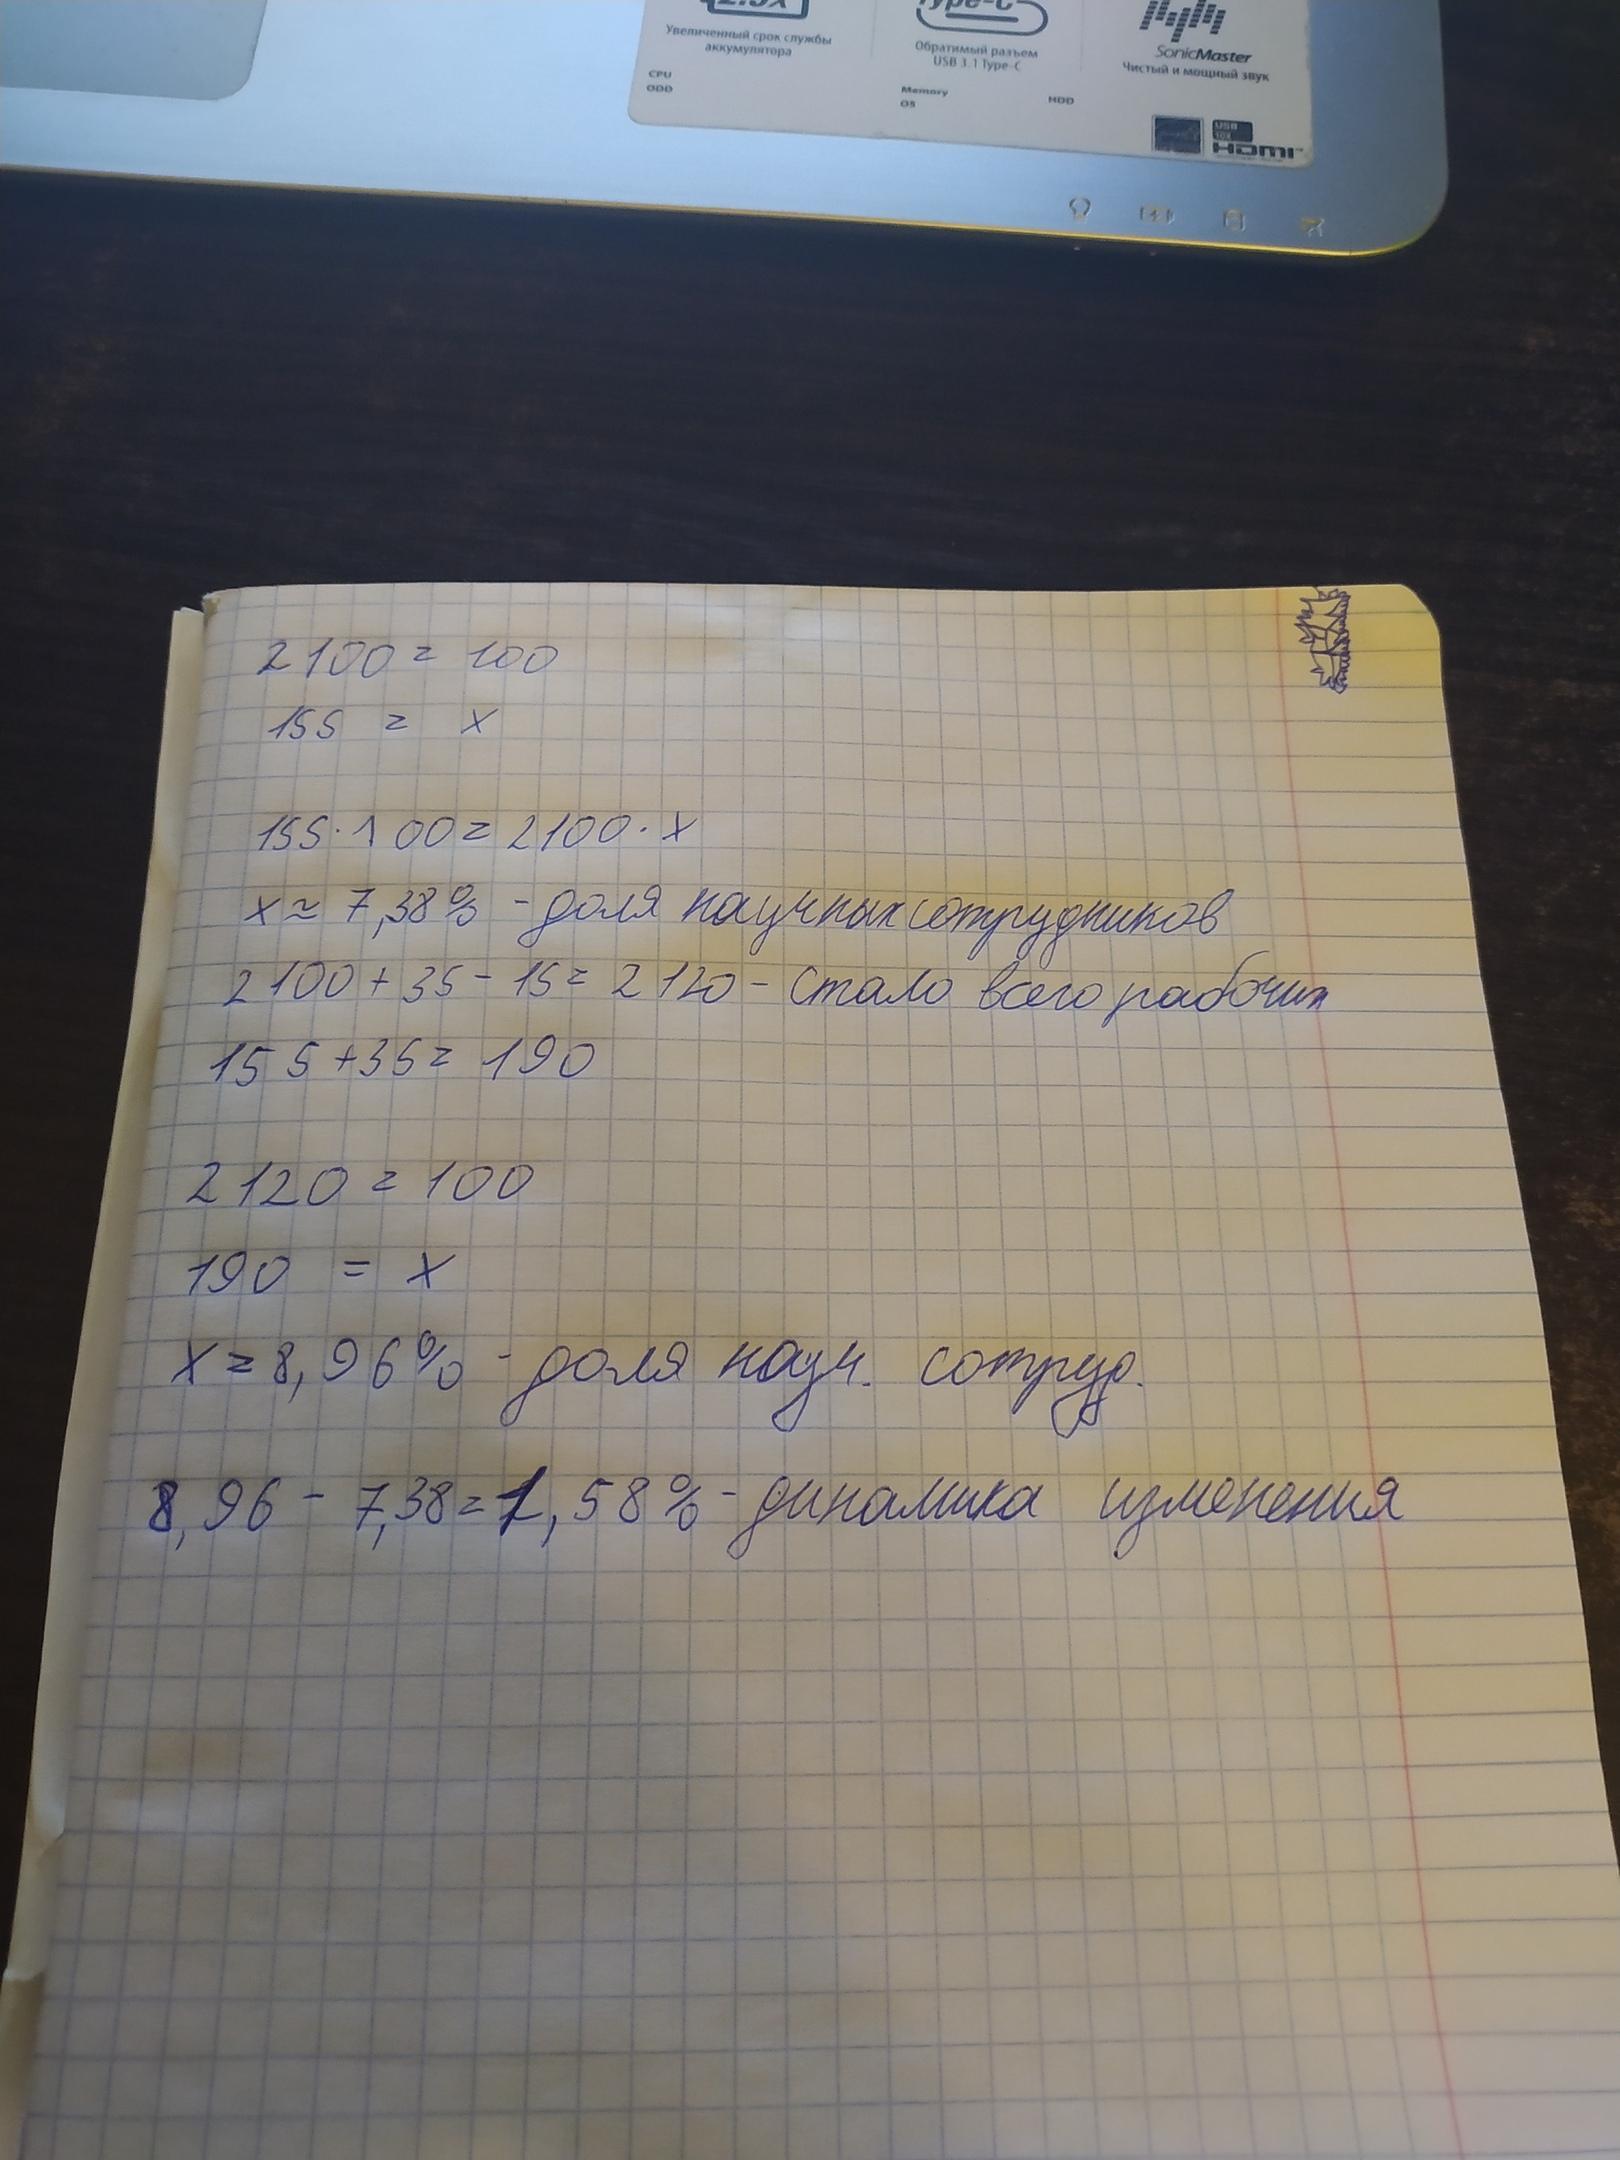 2.5x
Type-C
Увеличенный срок службы
аккумулятора
Обратимый разъем
USB 3.1 Type-C
SonicMaster
Чистый и мощный звук
CPU
ODD
Memory
OS
HDD
USB
HDMI
2100 = 100
155 = x
155·100 = 2100·x
x ≈ 7,38% - доля научных сотрудников
2100 + 35 - 15 = 2120 - стало всего рабочих
155 + 35 = 190
2120 = 100
190 = x
x = 8,96% - доля науч. сотруд.
8,96 - 7,38 = 1,58% - динамика изменения